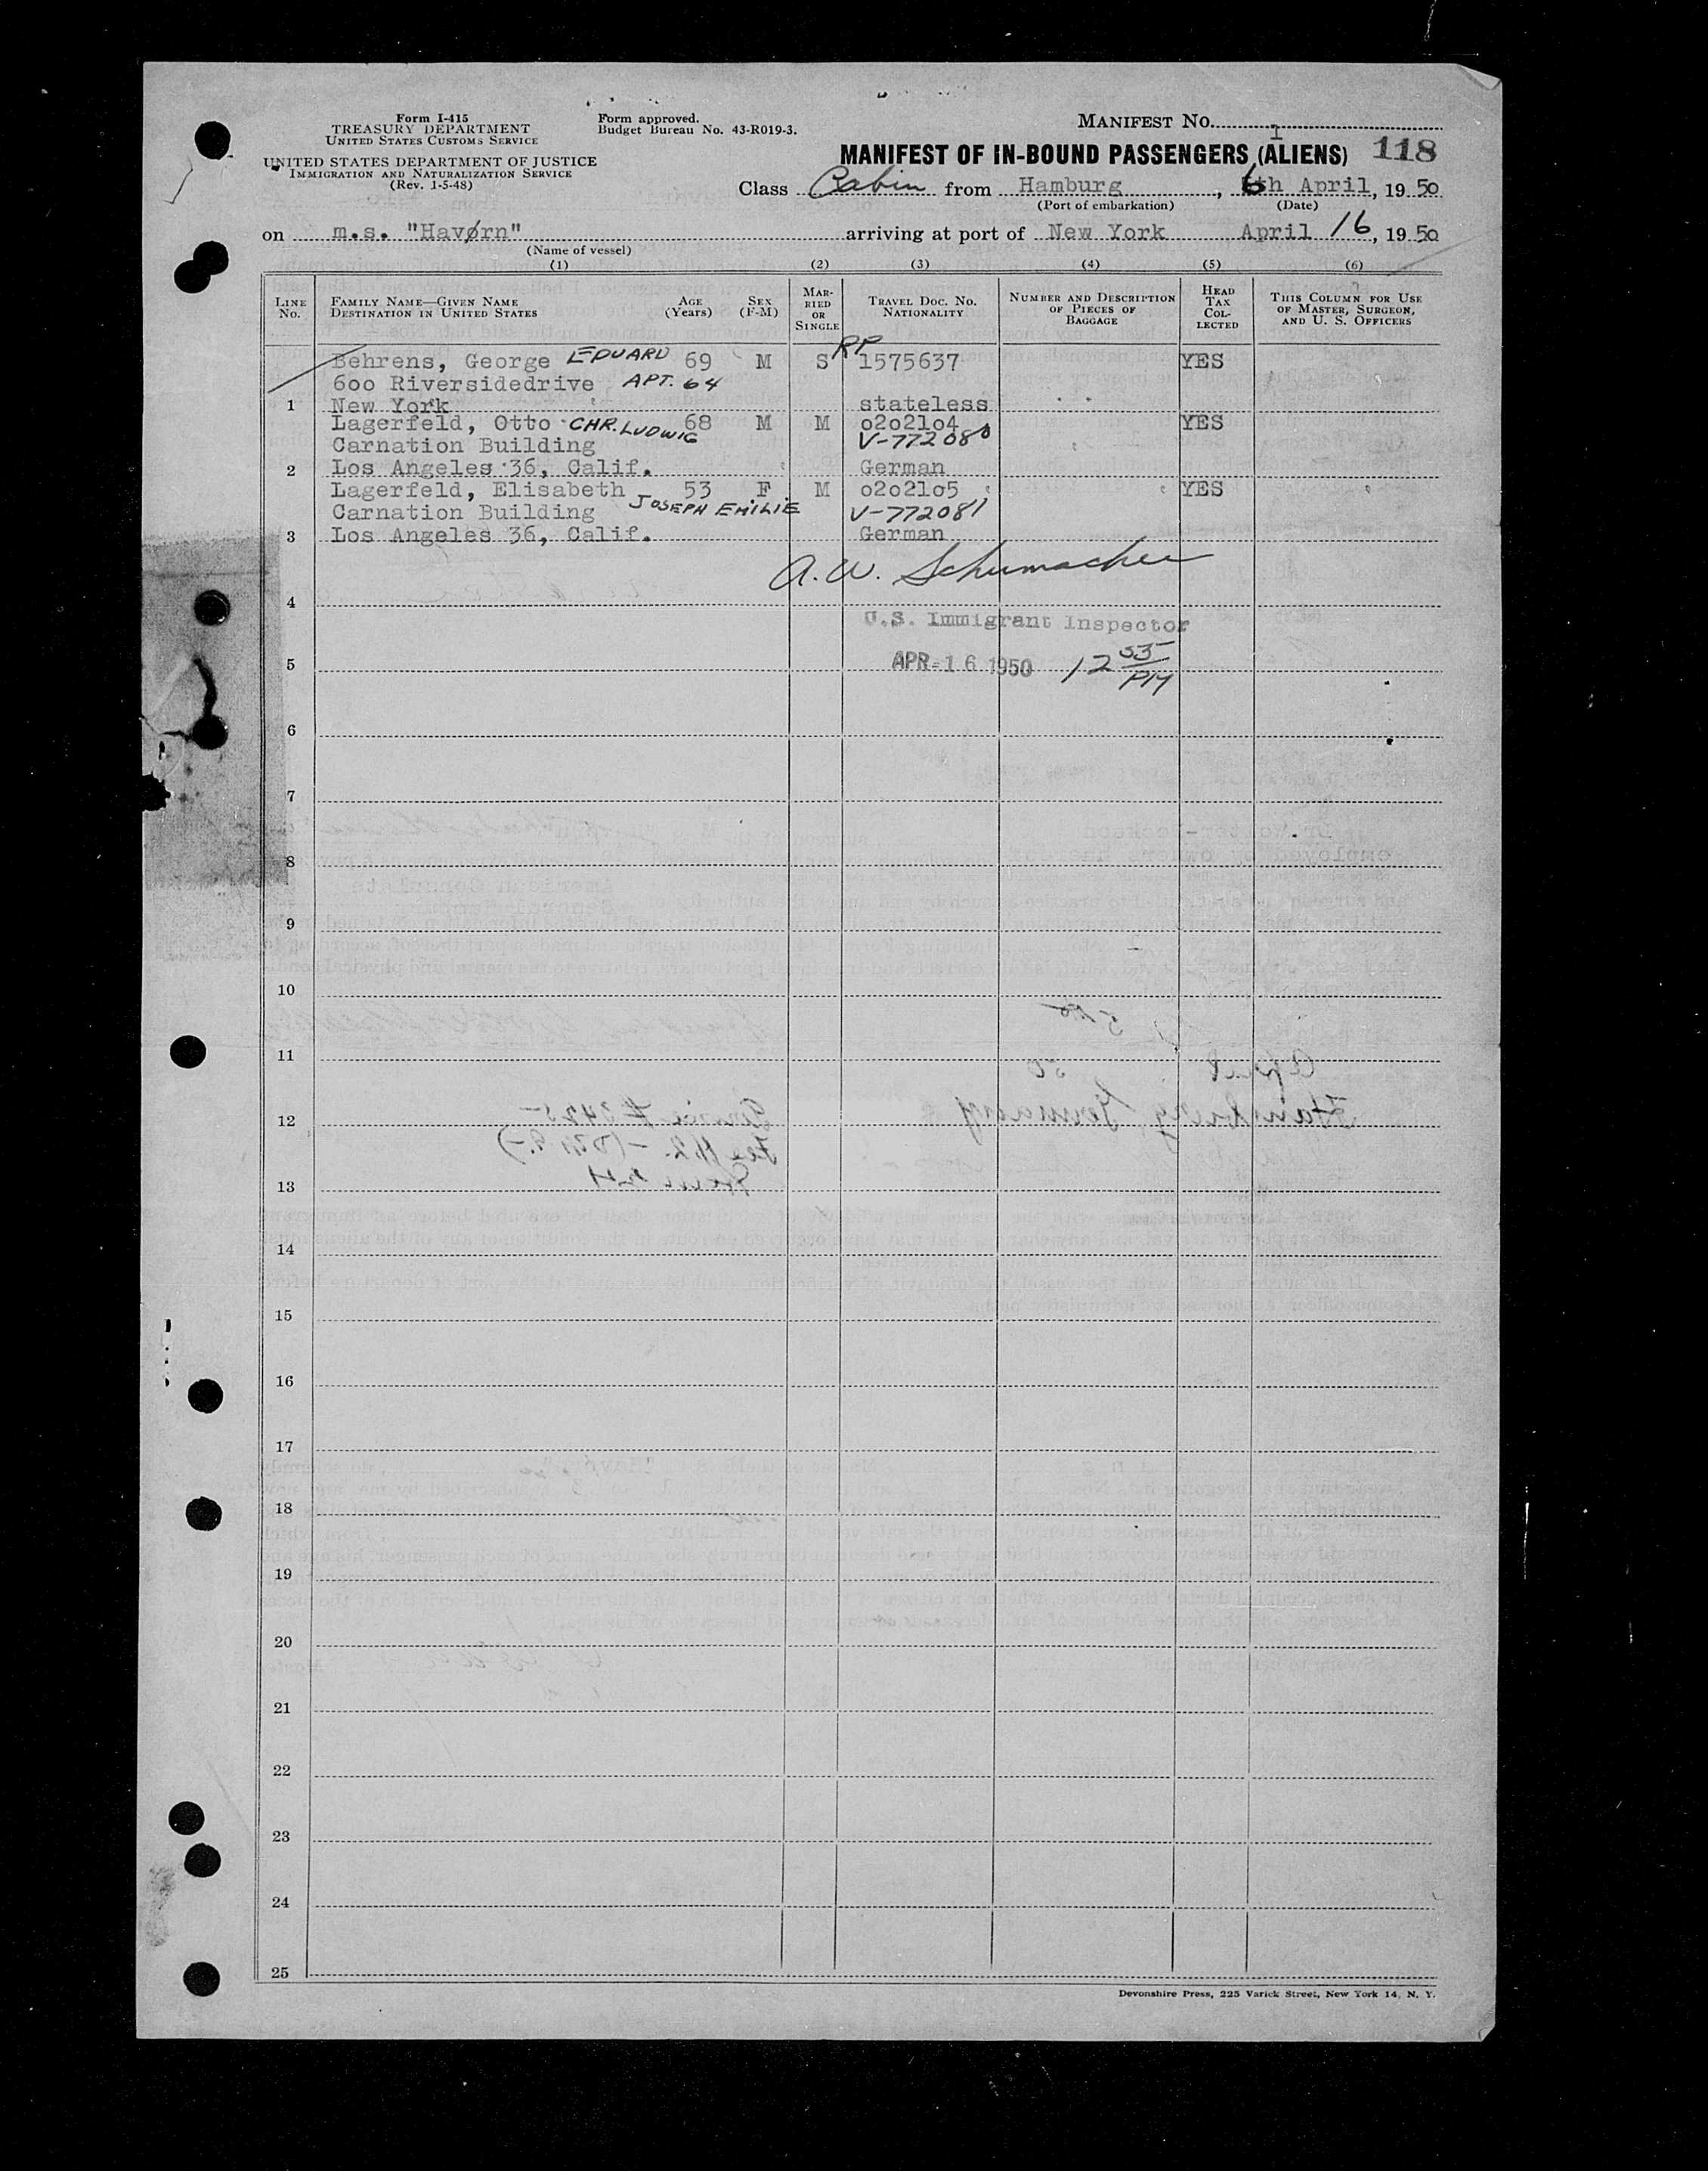 Form I-415
TREASURY DEPARTMENT
UNITED STATES CUSTOMS SERVICE
UNITED STATES DEPARTMENT OF JUSTICE
IMMIGRATION AND NATURALIZATION SERVICE
(Rev. 1-5-48)
Form approved.
Budget Bureau No. 43-R019-3.
MANIFEST No. I
MANIFEST OF IN-BOUND PASSENGERS (ALIENS) 118
Class Cabin from Hamburg, 6th April, 19 50
(Port of embarkation) (Date)
on m.s. "Havørn" arriving at port of New York April 16, 19 50
(Name of vessel)
(1) (2) (3) (4) (5) (6)
LINE No.
FAMILY NAME—GIVEN NAME
DESTINATION IN UNITED STATES
AGE (Years)
SEX (F-M)
MARRIED OR SINGLE
TRAVEL DOC. NO.
NATIONALITY
NUMBER AND DESCRIPTION OF PIECES OF BAGGAGE
HEAD TAX COLLECTED
THIS COLUMN FOR USE OF MASTER, SURGEON, AND U. S. OFFICERS
Behrens, George EDUARD 69 M S RP 1575637 YES
600 Riversidedrive APT. 64
1 New York stateless
Lagerfeld, Otto CHR. LUDWIG 68 M M o2o21o4 YES
Carnation Building V-772080
2 Los Angeles 36, Calif. German
Lagerfeld, Elisabeth JOSEPH EMILIE 53 F M o2o21o5 YES
Carnation Building V-772081
3 Los Angeles 36, Calif. German
A. W. Schumacher
4
U.S. Immigrant Inspector
5 APR 16 1950 12 53 PM
6
7
8
9
10
11
12
13
14
15
16
17
18
19
20
21
22
23
24
25
Devonshire Press, 225 Varick Street, New York 14, N. Y.